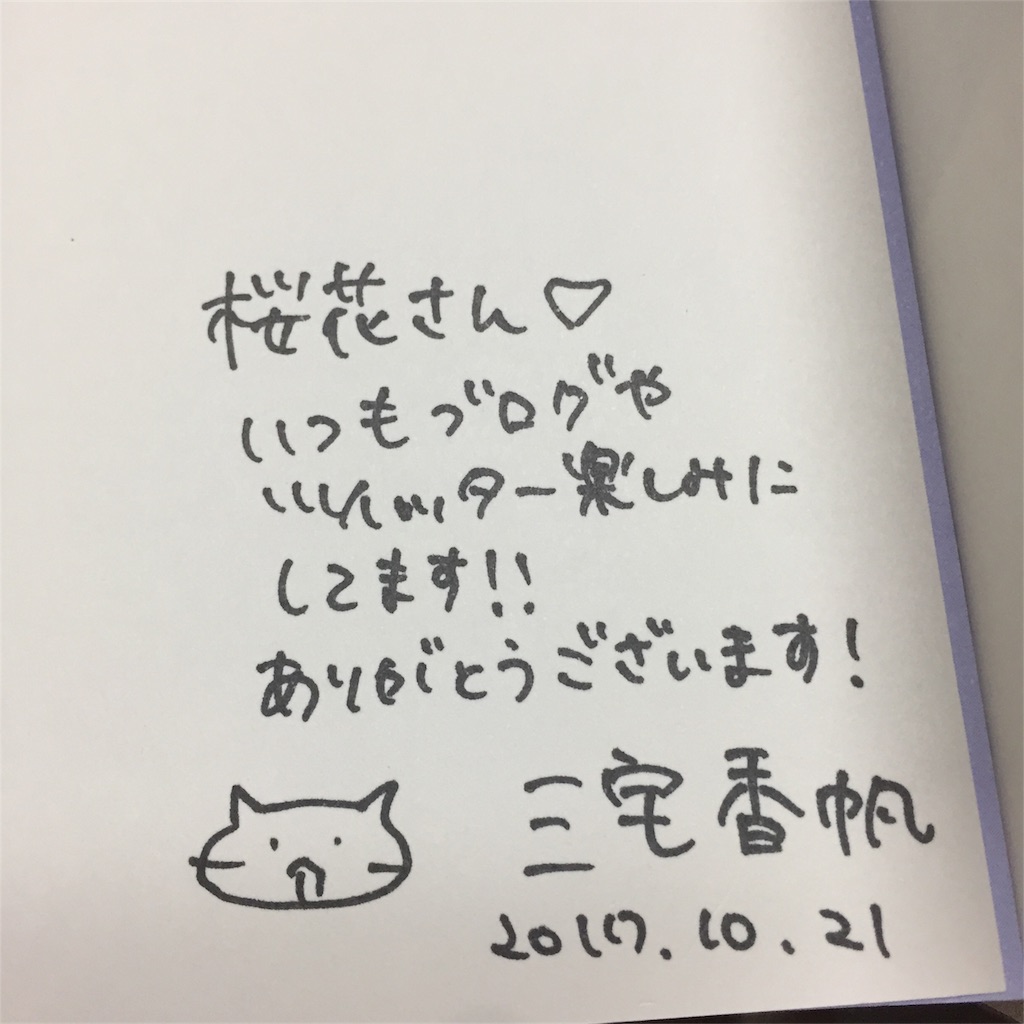 桜花さん♡
いつもブログや
ツイッター楽しみに
してます!!
ありがとうございます!
三宅香帆
2017.10.21